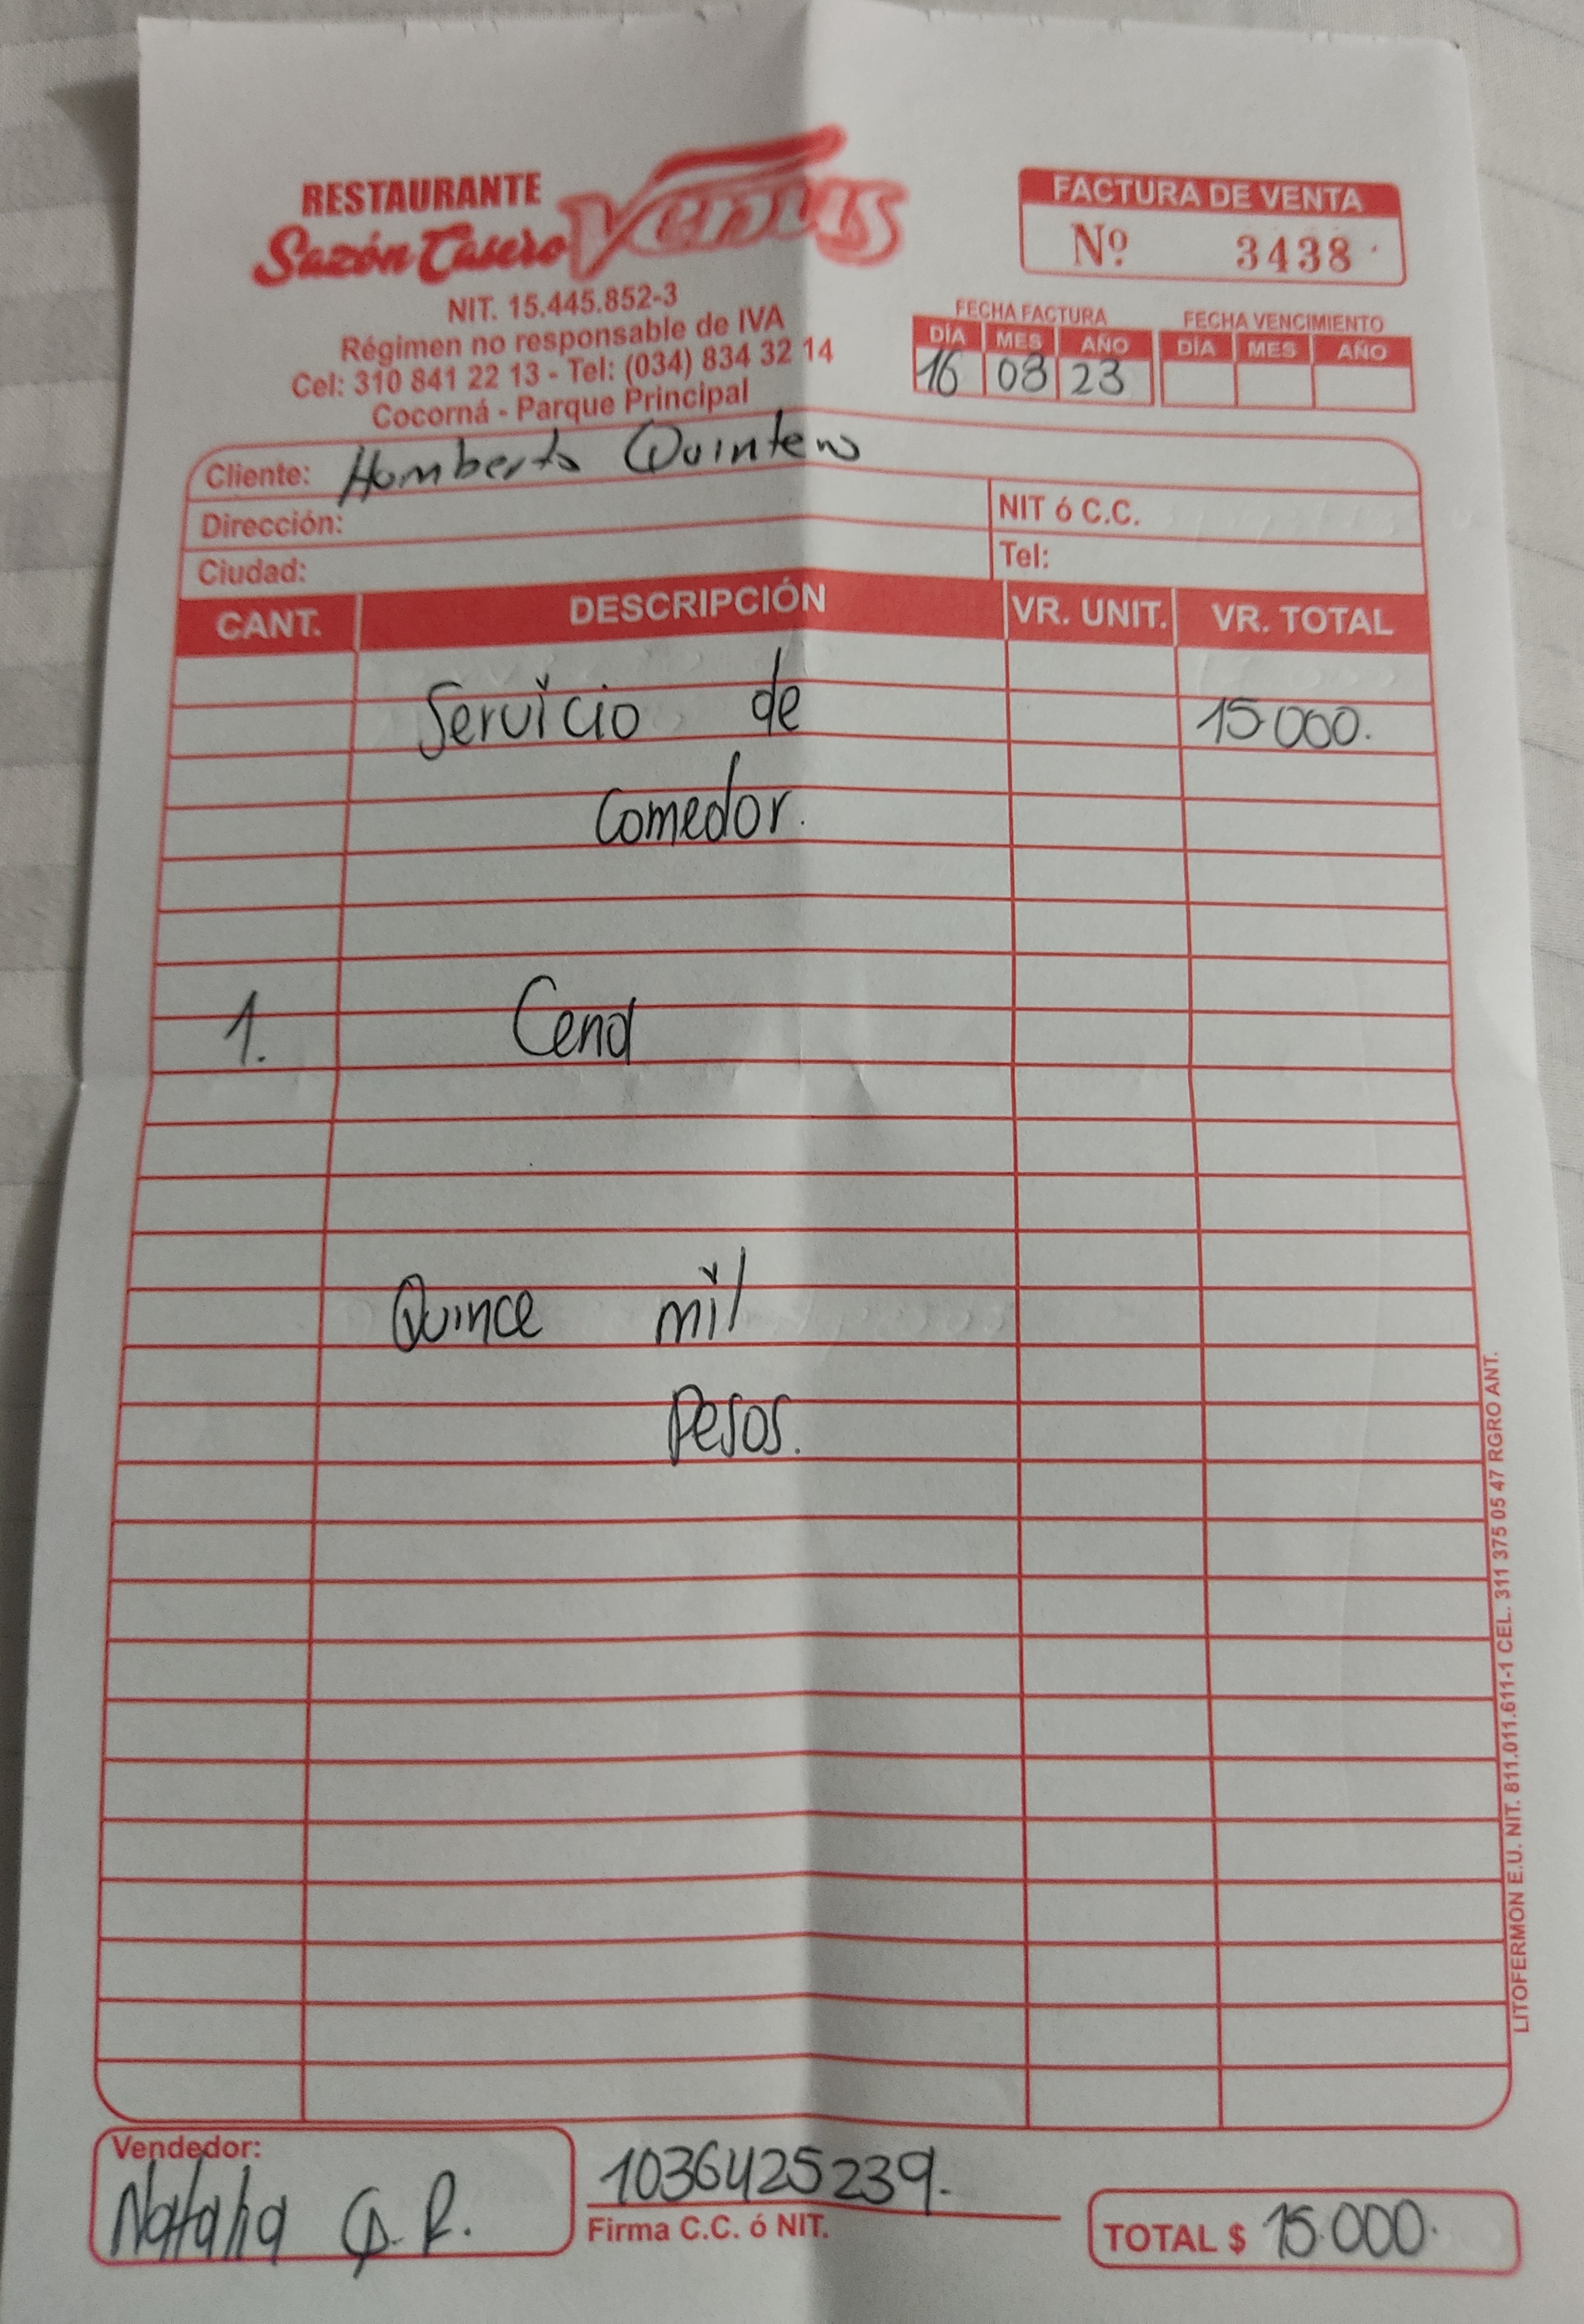 RESTAURANTE
Sazón Casero Venus
NIT. 15.445.852-3
Régimen no responsable de IVA
Cel: 310 841 22 13 - Tel: (034) 834 32 14
Cocorná - Parque Principal
FACTURA DE VENTA
Nº 3438
FECHA FACTURA
DÍA MES AÑO
16 08 23
FECHA VENCIMIENTO
DÍA MES AÑO
Cliente: Humberto Quintero
Dirección:
NIT ó C.C.
Ciudad:
Tel:
CANT. DESCRIPCIÓN VR. UNIT. VR. TOTAL
Servicio de 15000.
Comedor.
1. Cena
Quince mil
Pesos.
LITOFERMON E.U. NIT. 811.011.611-1 CEL. 311 375 05 47 RGRO ANT.
Vendedor:
Natalia Q. R.
1036425239.
Firma C.C. ó NIT.
TOTAL $ 15.000.